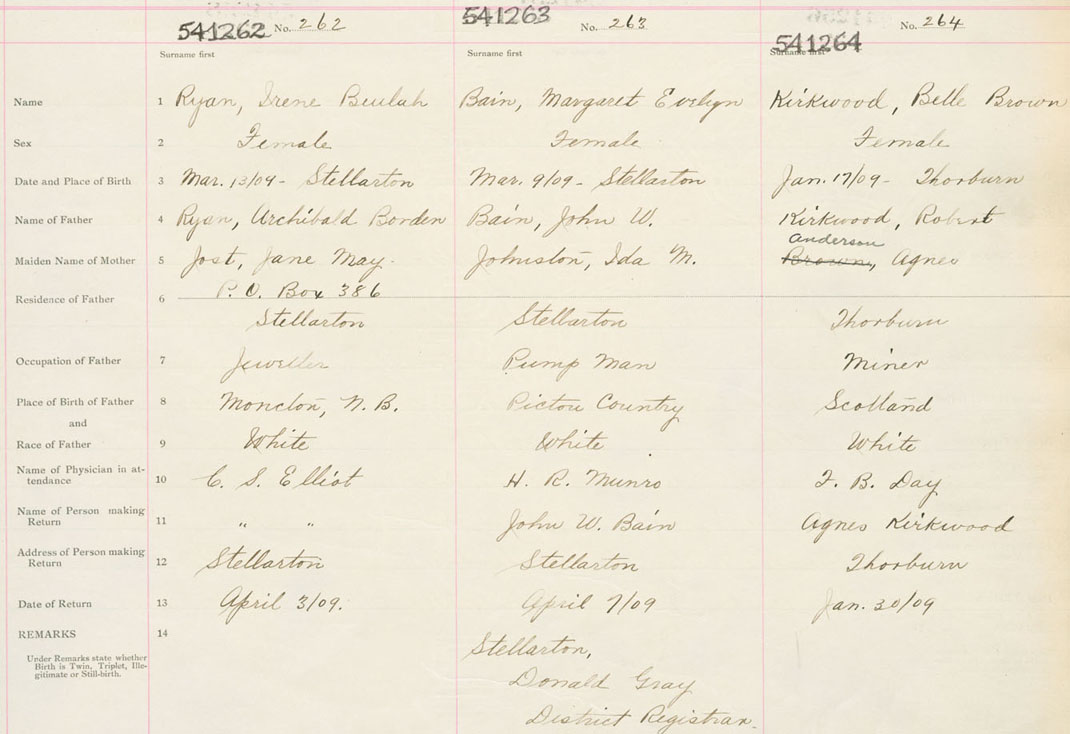 541262 No. 262 541263 No. 263 541264 No. 264
Surname first Surname first Surname first
Name 1 Ryan, Irene Beulah Bain, Margaret Evelyn Kirkwood, Belle Brown
Sex 2 Female Female Female
Date and Place of Birth 3 Mar. 13/09 - Stellarton Mar. 9/09 - Stellarton Jan. 17/09 - Thorburn
Name of Father 4 Ryan, Archibald Borden Bain, John W. Kirkwood, Robert
Anderson
Maiden Name of Mother 5 Jost, Jane May. Johnston, Ida M. Brown, Agnes
P.O. Box 386
Residence of Father 6
Stellarton Stellarton Thorburn
Occupation of Father 7 Jeweller Pump Man Miner
Place of Birth of Father 8 Moncton, N.B. Pictou Country Scotland
and
Race of Father 9 White White White
Name of Physician in at-
tendance 10 C. S. Elliot H. R. Munro F. B. Day
Name of Person making
Return 11 " " John W. Bain Agnes Kirkwood
Address of Person making
Return 12 Stellarton Stellarton Thorburn
Date of Return 13 April 3/09. April 7/09 Jan. 30/09
REMARKS 14
Stellarton,
Under Remarks state whether
Birth is Twin, Triplet, Ille-
gitimate or Still-birth.
Donald Gray
District Registrar.